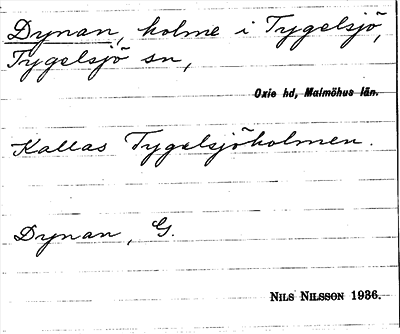 Dynan, holme i Tygelsjö,
Tygelsjö sn,
Oxie hd, Malmöhus län.
Kallas Tygelsjöholmen.
Dynan, G.
NILS NILSSON 1936.